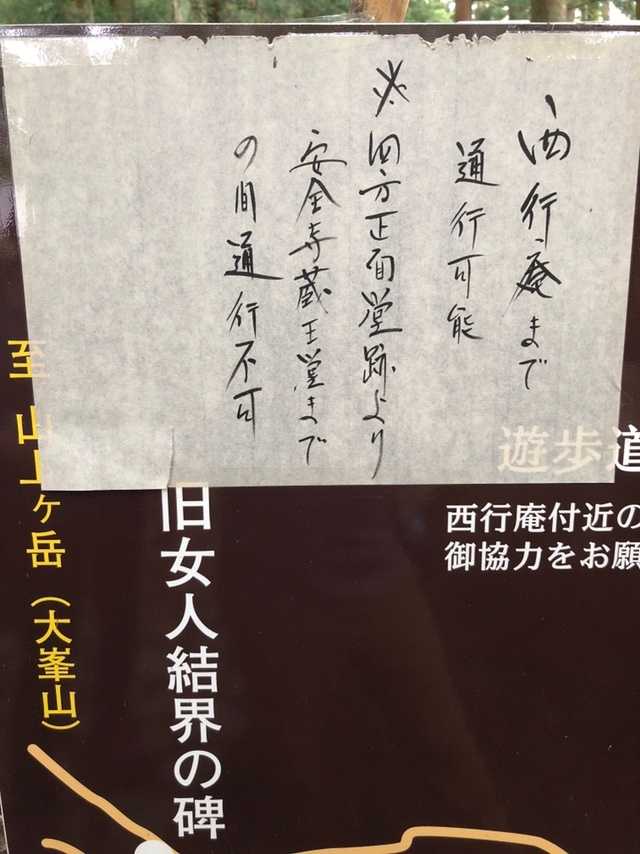 西行庵まで
通行可能
※四方正面堂跡より
安全寺蔵王堂まで
の間通行不可
遊歩道
西行庵付近の
御協力をお願
旧女人結界の碑
至 山上ヶ岳（大峯山）